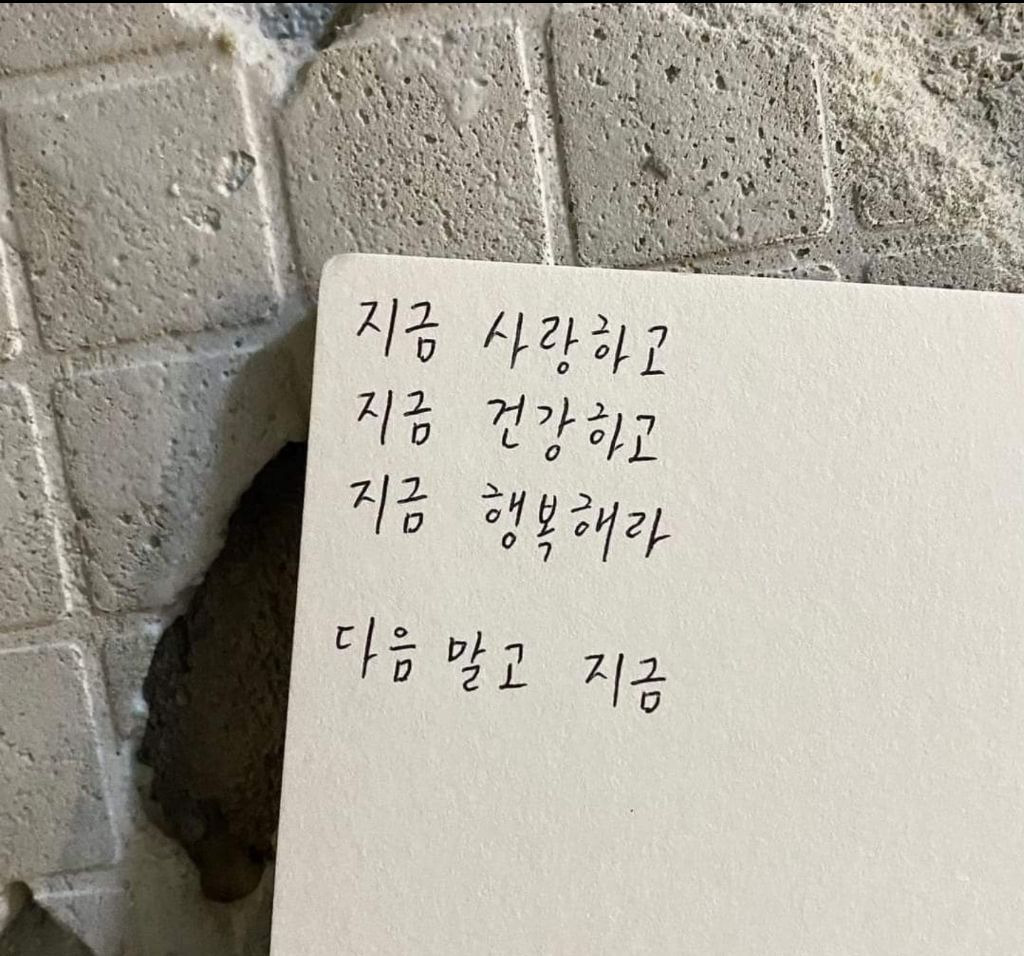 지금 사랑하고
지금 건강하고
지금 행복해라
다음 말고 지금